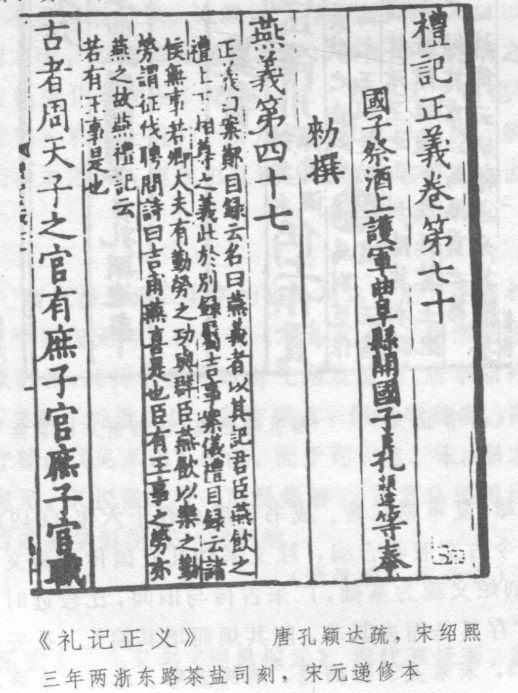 禮記正義卷第七十
國子祭酒上護軍曲阜縣開國子臣孔穎達等奉
勑撰
燕義第四十七
正義曰案鄭目録云名曰燕義者以其記君臣燕飲之
禮上下相尊之義此於别録屬吉事案儀禮目録云諸
侯無事若卿大夫有勤勞之功與群臣燕飲以樂之勤
勞謂征伐聘問詩曰吉甫燕喜是也臣有王事之勞亦
燕之故燕禮記云
若有王事是也
古者周天子之官有庶子官庶子官職
《礼记正义》 唐孔颖达疏，宋绍熙
三年两浙东路茶盐司刻，宋元递修本